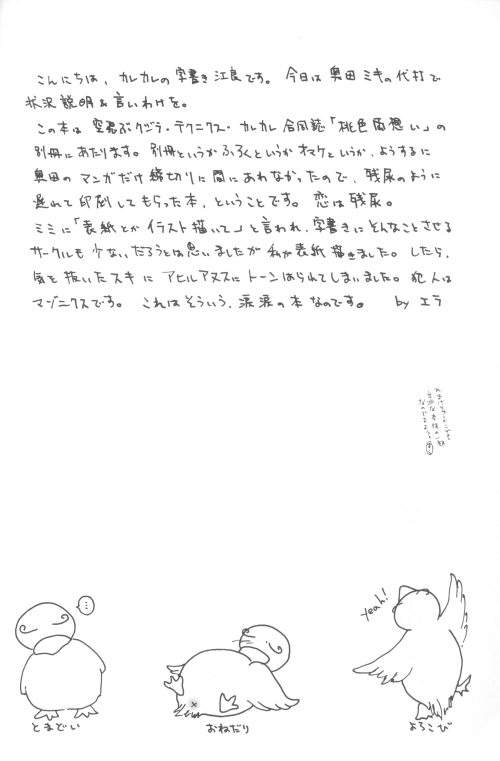 こんにちは、カレカレの字書き江良です。今日は奥田ミキの代打で
状況説明&言いわけを。
この本は空飛ぶクジラ・テクニクス・カレカレ合同誌「桃色片想い」の
別冊にあたります。別冊というかふろくというかオマケというか、ようするに
奥田のマンガだけ締切りに間にあわなかったので、残尿のように
遅れて印刷してもらった本、ということです。恋は残尿。
ミミに「表紙とかイラスト描いて」と言われ、字書きにそんなことさせる
サークルも少ないだろうとは思いましたが私が表紙描きました。したら、
気を抜いたスキにアヒルアヌスにトーンはられてしまいました。犯人は
マゾニクスです。これはそういう、涙涙の本なのです。 by エラ
…
yeah!
とまどい
おねだり
よろこび